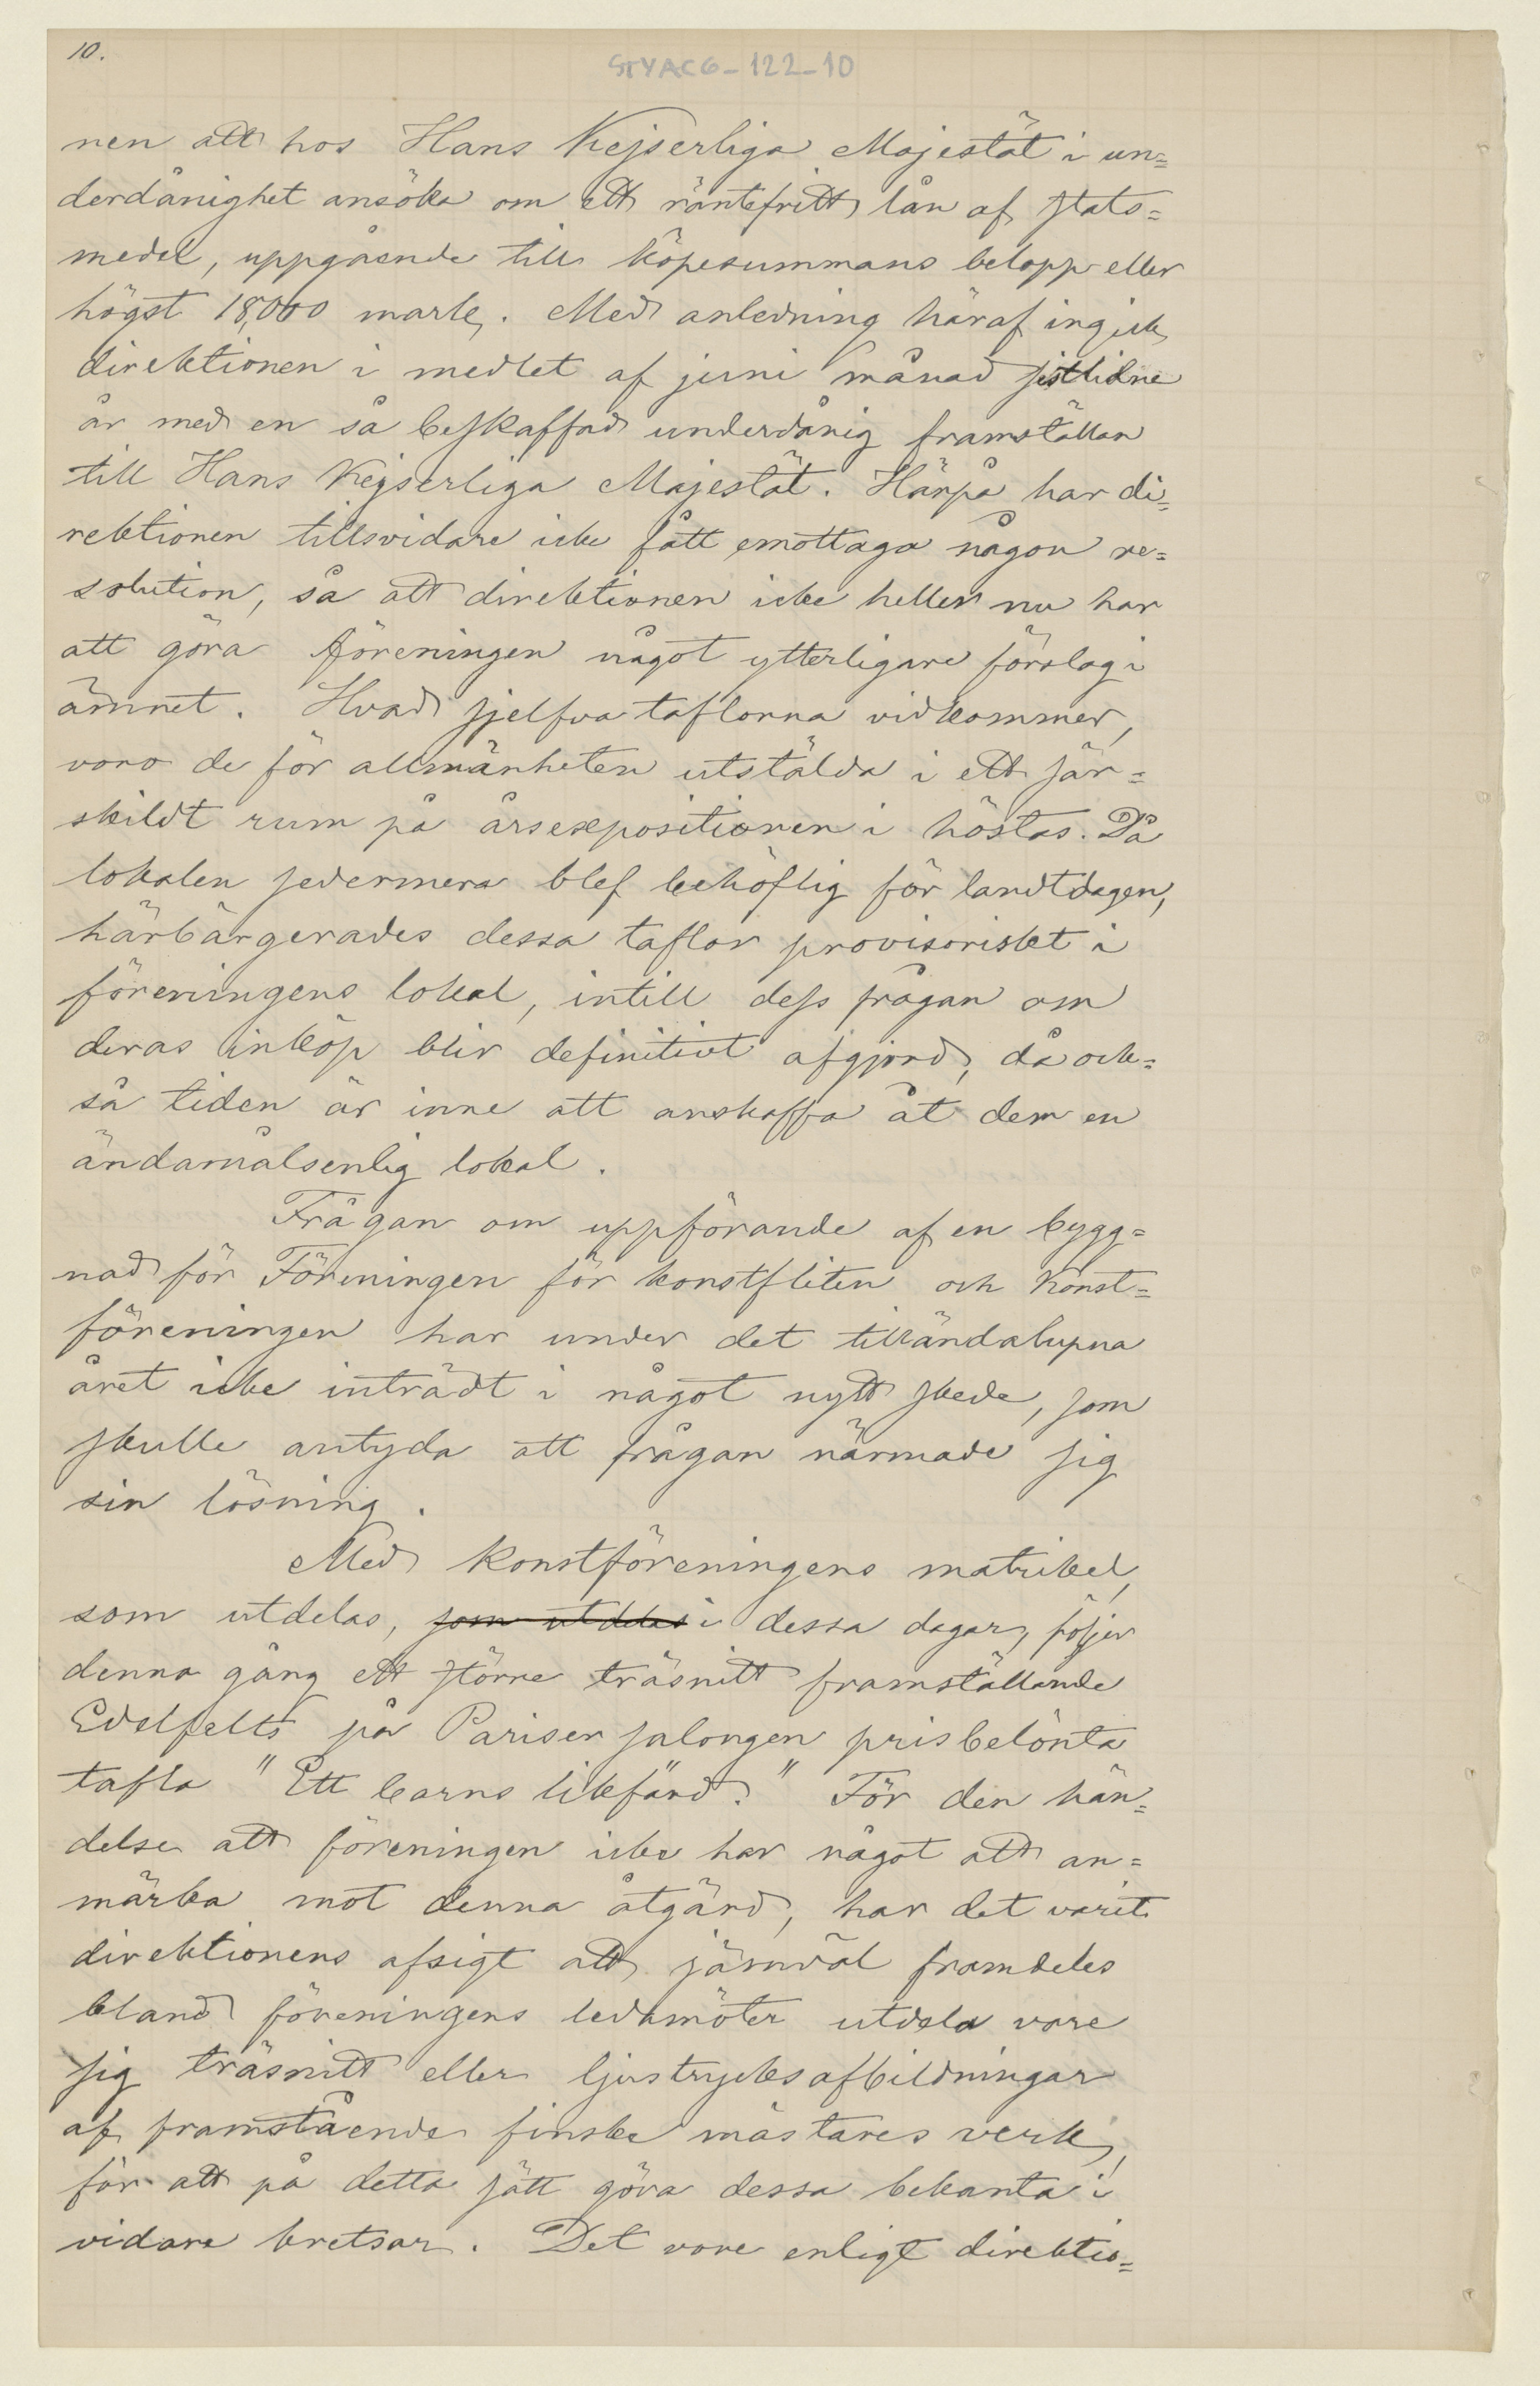 10.
STYAC6-122-10
nen att hos Hans Kejserliga Majestät i un=
derdånighet ansöka om ett räntefritt lån af stats=
medel, uppgående till köpesummans belopp eller
högst 18,000 mark. Med anledning häraf ingick
direktionen i medlet af juni månad sistlidne
år med en så beskaffad underdånig framställan
till Hans Kejserliga Majestät. Härpå har di=
rektionen tillsvidare icke fått emottaga någon re=
solution, så att direktionen icke heller nu har
att göra föreningen något ytterligare förslag i
ämnet. Hvad sjelfva taflorna vidkommer,
voro de för allmänheten utstälda i ett sär=
skildt rum på årsexpositionen i höstas. Då
lokalen sedermera blef behöflig för landtdagen,
härbärgerades dessa taflor provisoriskt i
föreningens lokal, intill dess frågan om
deras inköp blir definitivt afgjord, då ock=
så tiden är inne att anskaffa åt dem en
ändamålsenlig lokal.
Frågan om uppförande af en bygg=
nad för Föreningen för konstfliten och Konst=
föreningen har under det tilländalupna
året icke inträdt i något nytt skede, som
skulle antyda att frågan närmade sig
sin lösning.
Med Konstföreningens matrikel,
som utdelas, som utdelas i dessa dagar, följer
denna gång ett större träsnitt framställande
Edelfelts på Pariser salongen prisbelönta
tafla "Ett barns likfärd." För den hän=
delse att föreningen icke har något att an=
märka mot denna åtgärd, har det varit
direktionens afsigt att jämväl framdeles
bland föreningens ledamöter utdela vare
sig träsnitt eller ljustrycksafbildningar
af framstående finske mästares verk,
för att på detta sätt göra dessa bekanta i
vidare kretsar. Det vore enligt direktio=